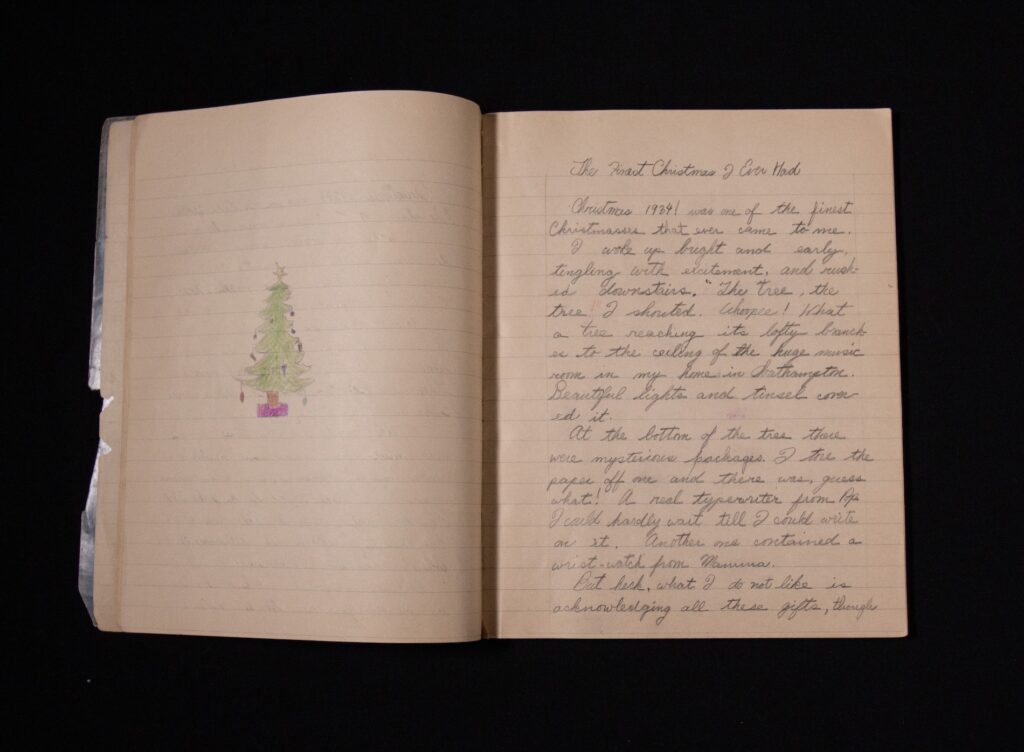 The Finest Christmas I Ever Had
Christmas 1934! was one of the finest
Christmasses that ever came to me.
I woke up bright and early,
tingling with excitement, and rush-
ed downstairs. "The tree, the
tree! I shouted. Whoopee! What
a tree reaching its lofty branch-
es to the ceiling of the huge music
room in my home in Nathampton.
Beautiful lights and tinsel cover-
ed it.
At the bottom of the tree there
were mysterious packages. I tore the
paper off one and there was, guess
what! A real typewriter from
I could hardly wait till I could write
on it. Another one contained a
wrist-watch from Mamma.
But heck, what I do not like is
acknowledging all these gifts, though